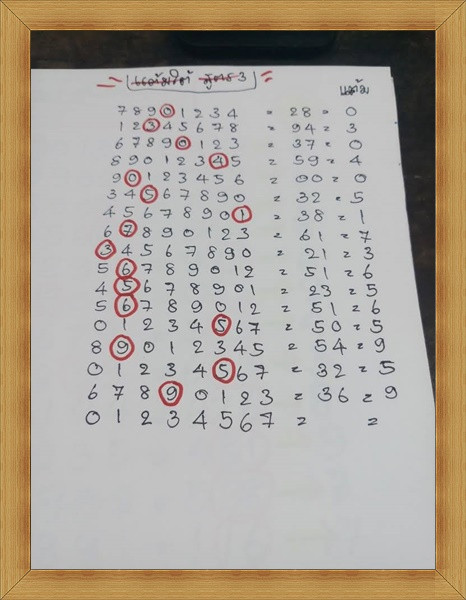 = แต้มใต้ สูตร 3 =
แต้ม
7 8 9 0 1 2 3 4 = 28 = 0
1 2 3 4 5 6 7 8 = 94 = 3
6 7 8 9 0 1 2 3 = 37 = 0
8 9 0 1 2 3 4 5 = 59 = 4
9 0 1 2 3 4 5 6 = 00 = 0
3 4 5 6 7 8 9 0 = 32 = 5
4 5 6 7 8 9 0 1 = 38 = 1
6 7 8 9 0 1 2 3 = 61 = 7
3 4 5 6 7 8 9 0 = 21 = 3
5 6 7 8 9 0 1 2 = 51 = 6
4 5 6 7 8 9 0 1 = 23 = 5
5 6 7 8 9 0 1 2 = 51 = 6
0 1 2 3 4 5 6 7 = 50 = 5
8 9 0 1 2 3 4 5 = 54 = 9
0 1 2 3 4 5 6 7 = 32 = 5
6 7 8 9 0 1 2 3 = 36 = 9
0 1 2 3 4 5 6 7 = =